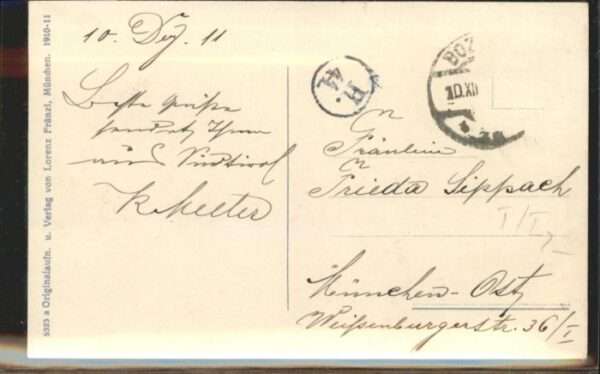 10. Dez. 11
Beste Grüße
sendet Ihnen
aus Südtirol
K. Melter
5323 a Originalaufn. u. Verlag von Lorenz Fränzl, München. 1910-11
44
BOZ
10.XII
Fräulein
Frieda Sippach
I/I
München-Ost
Weißenburgerstr. 36/I